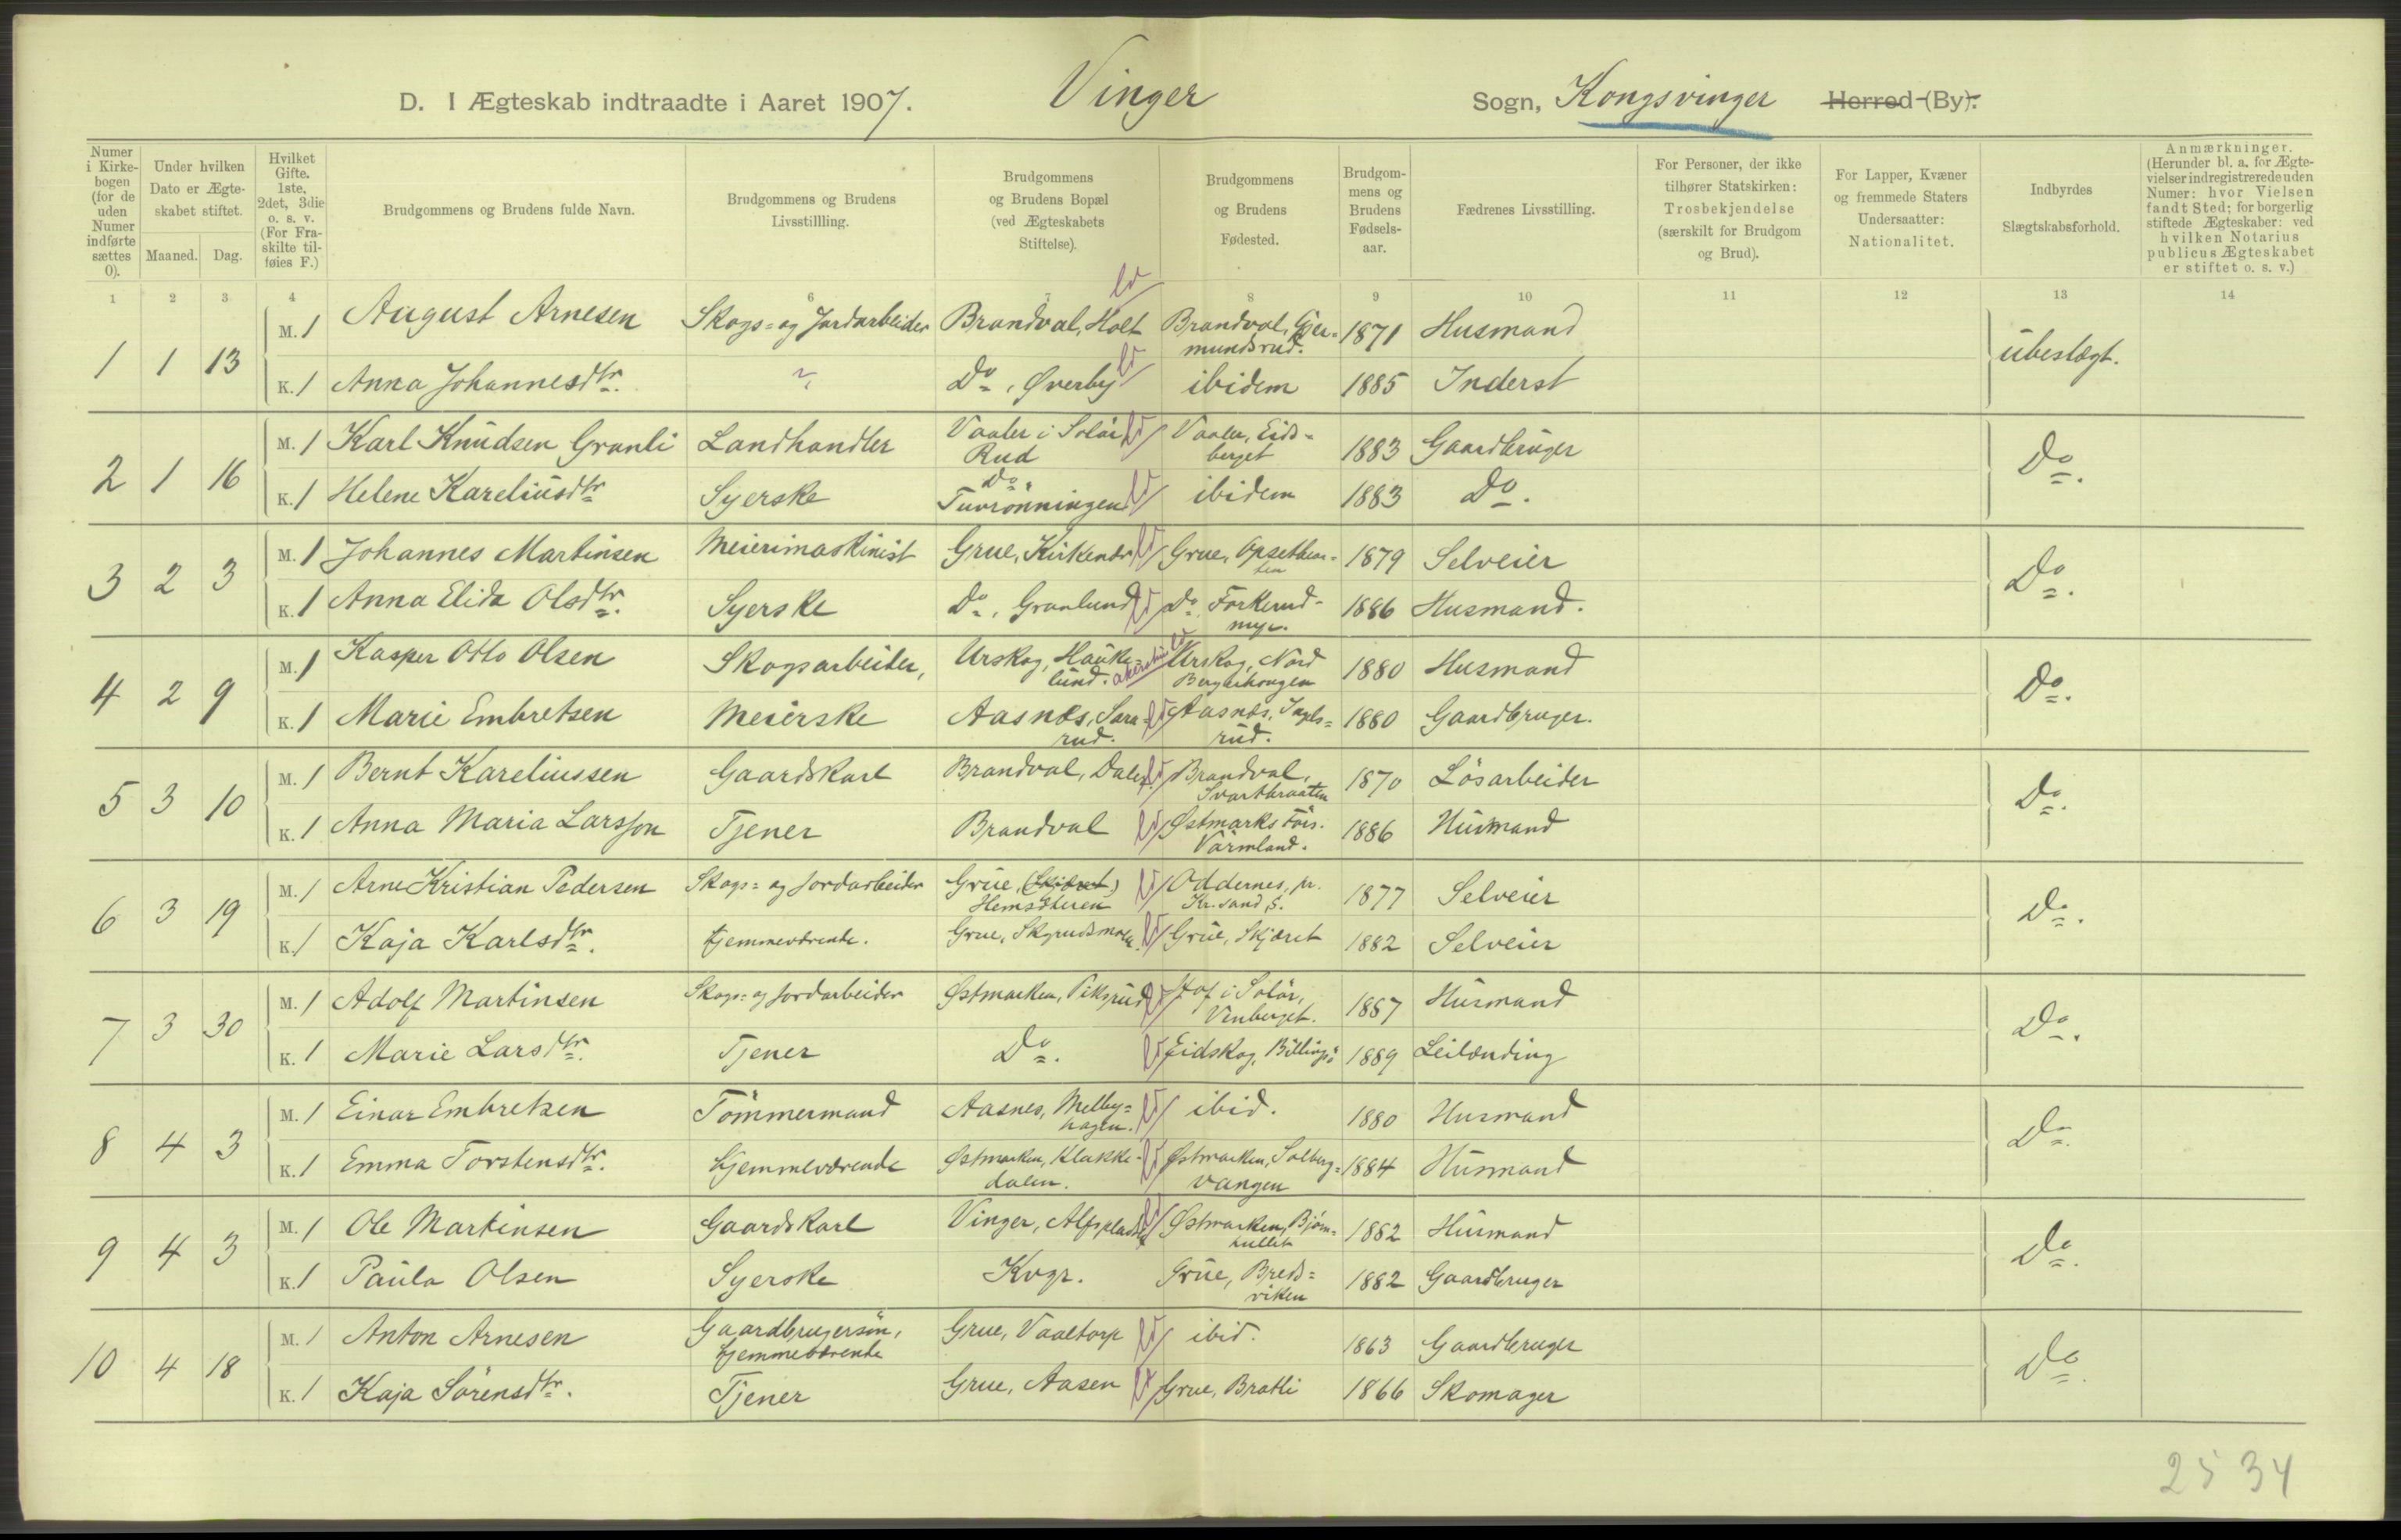 D. I Ægteskab indtraadte i Aaret 1907. Vinger Sogn, Kongsvinger Herred (By).
Numer i Kirkebogen (for de uden Numer indførte sættes 0).
Under hvilken Dato er Ægteskabet stiftet.
Maaned. Dag.
Hvilket Gifte. 1ste, 2det, 3die o. s. v. (For Fraskilte tilføies F.)
Brudgommens og Brudens fulde Navn.
Brudgommens og Brudens Livsstillling.
Brudgommens og Brudens Bopæl (ved Ægteskabets Stiftelse).
Brudgommens og Brudens Fødested.
Brudgommens og Brudens Fødselsaar.
Fædrenes Livsstilling.
For Personer, der ikke tilhører Statskirken: Trosbekjendelse (særskilt for Brudgom og Brud).
For Lapper, Kvæner og fremmede Staters Undersaatter: Nationalitet.
Indbyrdes Slægtskabsforhold.
Anmærkninger. (Herunder bl. a. for Ægtevielser indregistrerede uden Numer: hvor Vielsen fandt Sted; for borgerlig stiftede Ægteskaber: ved hvilken Notarius publicus Ægteskabet er stiftet o. s. v.)
1 2 3 4 6 7 8 9 10 11 12 13 14
1 1 13 M. 1 August Arnesen Skogs= og Jordarbeider Brandval, Holt Brandval, Gjermundsrud. 1871 Husmand ubeslægt.
K. 1 Anna Johannesdtr. " Do, Øverby ibidem 1885 Inderst
2 1 16 M. 1 Karl Knudsen Granli Landhandler Vaaler i Solør Rud Vaaler, Eidsberget 1883 Gaardbruger Do.
K. 1 Helene Kareliusdtr Syerske Do, Tuvrønningen ibidem 1883 Do.
3 2 3 M. 1 Johannes Martinsen Meierimaskinist Grue, Kirkenær Grue, 1879 Selveier Do.
K. 1 Anna Elida Olsdtr. Syerske Do, Granlund Do Forkerudmyr. 1886 Husmand.
4 2 9 M. 1 Kasper Otto Olsen Skogsarbeider, Urskog, Haukelund. Urskog, Nord 1880 Husmand Do.
K. 1 Marie Embretsen Meierske Aasnes, Sararud. Aasnes, 1880 Gaardbruger.
5 3 10 M. 1 Bernt Kareliussen Gaardskarl Brandval, Dalen Brandval, Svartbraaten 1870 Løsarbeider Do.
K. 1 Anna Maria Larsson Tjener Brandval Østmarks Førs. Värmland. 1886 Husmand
6 3 19 M. 1 Arne Kristian Pedersen Skogs= og Jordarbeider Grue, (Skjæret) Hemsæteren Oddernes, pr. Kr.sand, S. 1877 Selveier Do.
K. 1 Kaja Karlsdtr. hjemmeværende. Grue, Grue, Skjæret 1882 Selveier
7 3 30 M. 1 Adolf Martinsen Skogs= og Jordarbeider Østmarken, Pikerud Hof i Solør, Venberget. 1887 Husmand Do.
K. 1 Marie Larsdtr. Tjener Do. Eidskog, 1889 Leilænding
8 4 3 M. 1 Einar Embretsen Tømmermand Aasnes, Melbyhagen. ibid. 1880 Husmand Do.
K. 1 Emma Torstensdtr. hjemmeværende Østmarken, Klakkedalen. Østmarken, Solbergvangen 1884 Husmand
9 4 3 M. 1 Ole Martinsen Gaardskarl Vinger, Alfspladsen Østmarken, 1882 Husmand Do.
K. 1 Paula Olsen Syerske Kvgr. Grue, Bredsviken 1882 Gaardbruger
10 4 18 M. 1 Anton Arnesen Gaardbrugersøn, hjemmeværende Grue, Vaaltorp ibid. 1863 Gaardbruger Do.
K. 1 Kaja Sørensdtr. Tjener Grue, Aasen Grue, Bratli 1866 Skomager
25 34